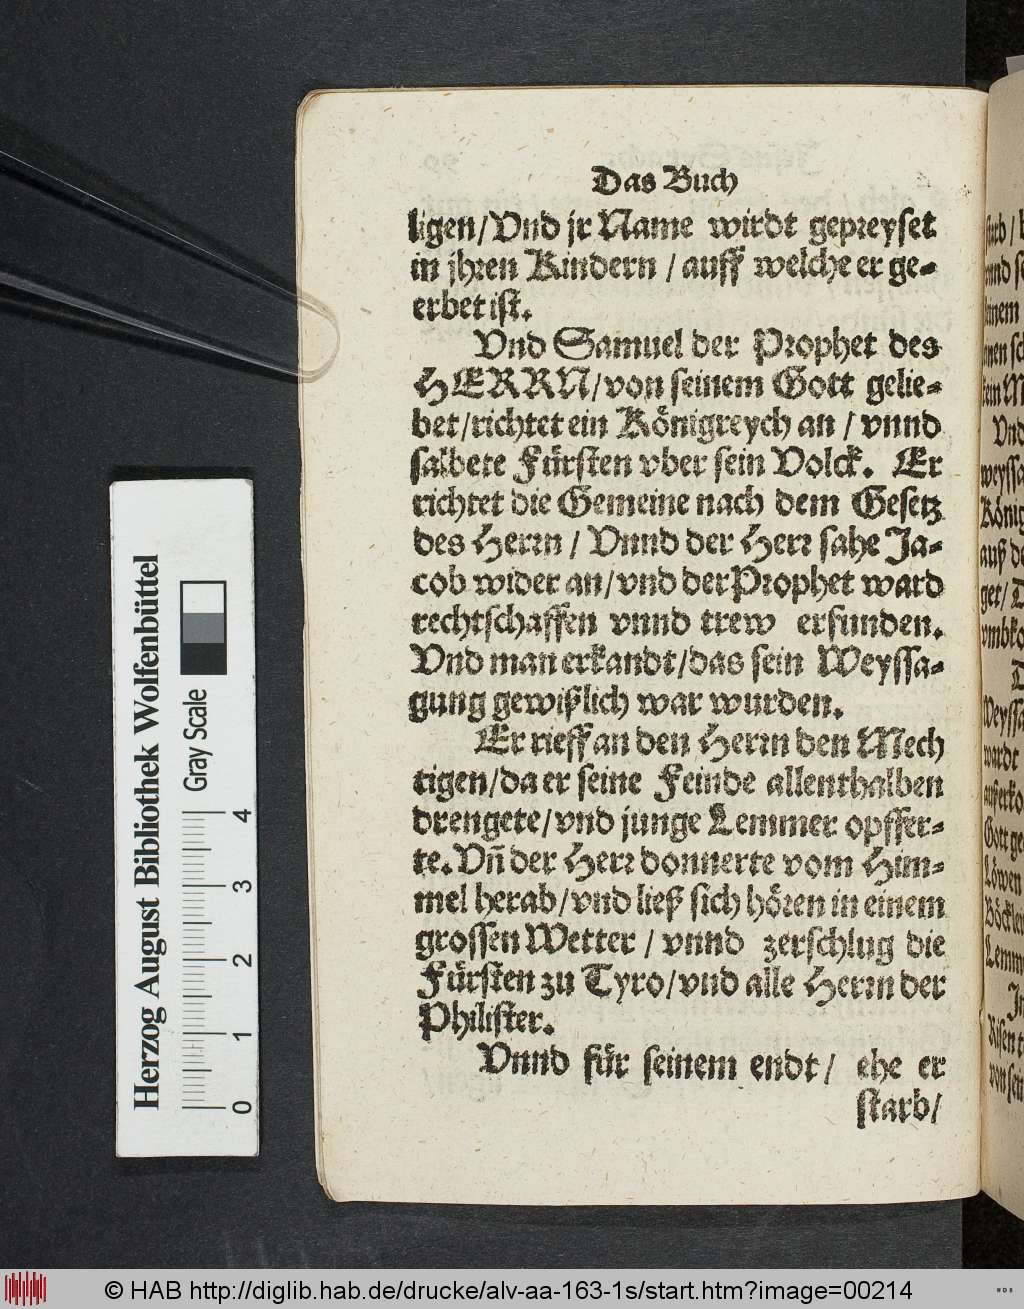 Das Buch
ligen/Vnd jr Name wirdt gepreyset
in jhren Kindern / auff welche er ge-
erbet ist.
Vnd Samuel der Prophet des
HERRN/von seinem Gott gelie-
bet/richtet ein Königreych an / vnnd
salbete Fürsten vber sein Volck. Er
richtet die Gemeine nach dem Gesetz
des Herrn / Vnnd der Herr sahe Ja-
cob wider an/vnd der Prophet ward
rechtschaffen vnnd trew erfunden.
Vnd man erkandt/das sein Weyssa-
gung gewißlich war wurden.
Er rieff an den Herrn den Mech
tigen/da er seine Feinde allenthalben
drengete/vnd junge Lemmer opffer-
te. Vñ der Herr donnerte vom Him-
mel herab/vnd ließ sich hören in einem
grossen Wetter / vnnd zerschlug die
Fürsten zu Tyro/vnd alle Herrn der
Philister.
Vnnd für seinem endt / ehe er
starb/
Herzog August Bibliothek Wolfenbüttel
Gray Scale
0 1 2 3 4
© HAB http://diglib.hab.de/drucke/alv-aa-163-1s/start.htm?image=00214